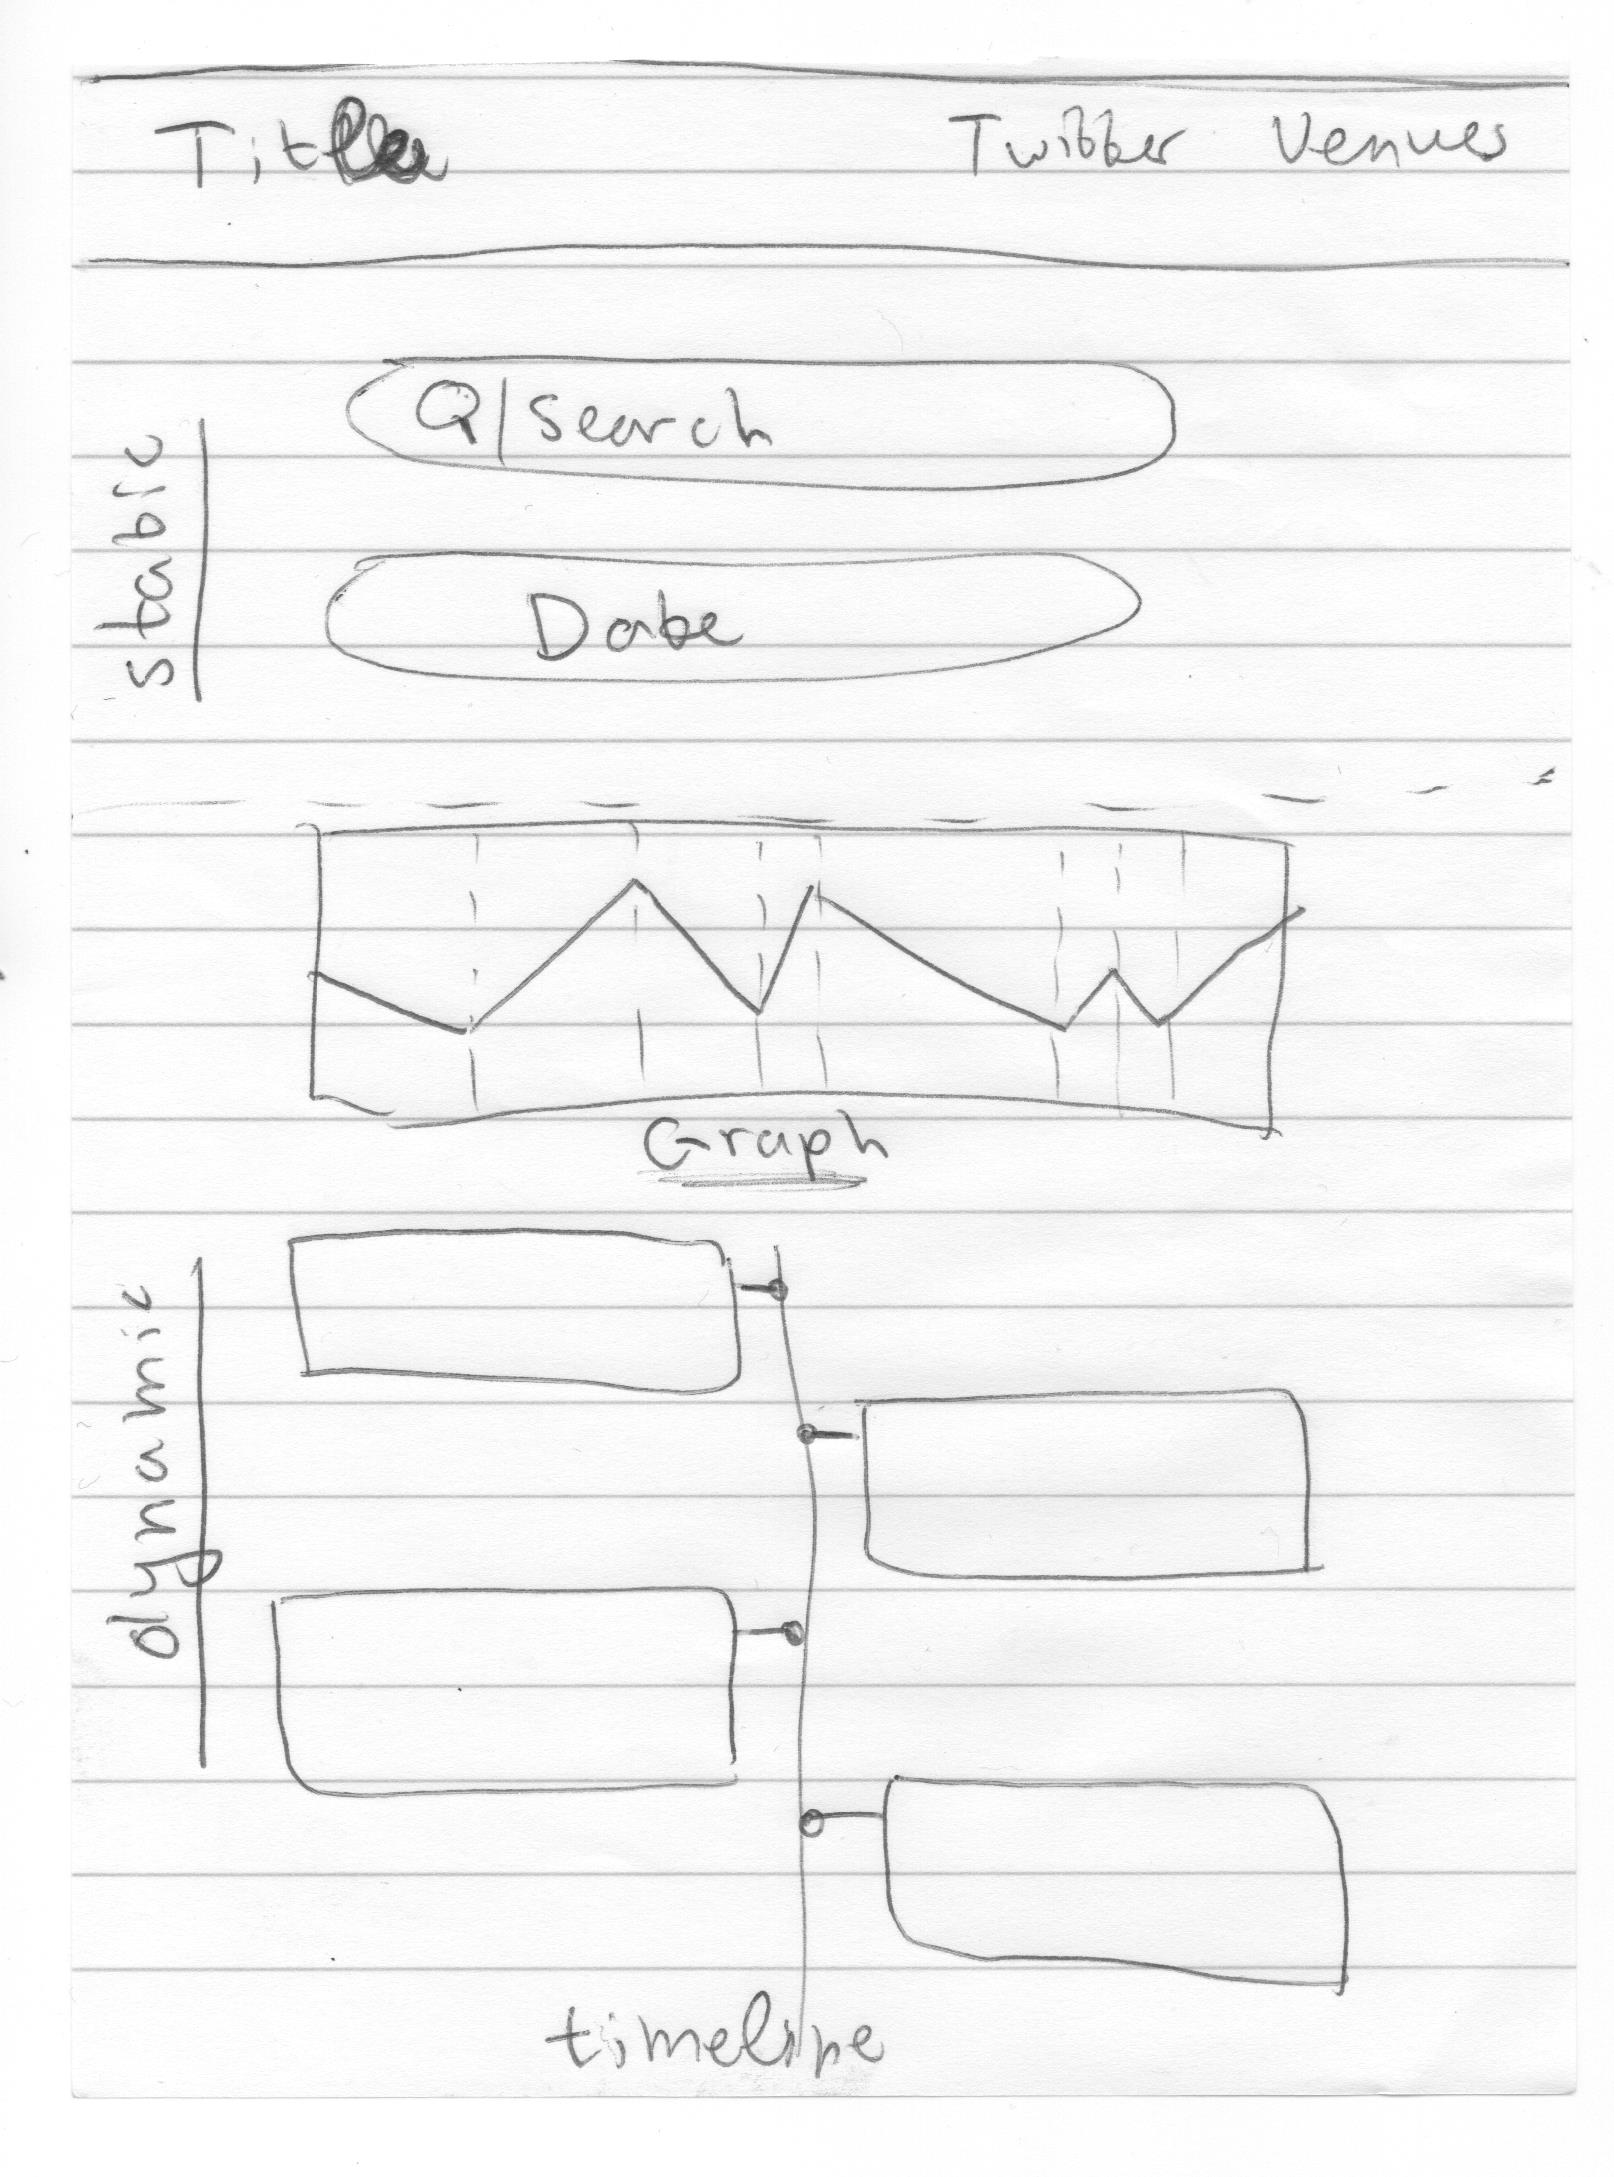 Title Twitter Venues
Q/search
static
Date
Graph
dynamic
timeline